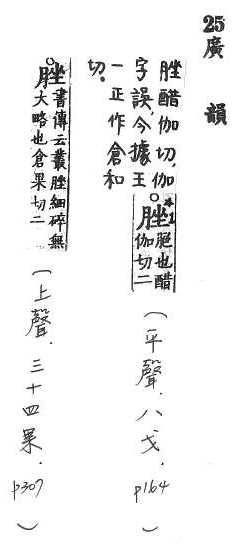 25廣韻
脞醋伽切,伽
字誤,今據王
一正作倉和
切。
。脞*1
脃也醋
伽切二
(平聲.八戈.p164)
。脞
書傳云叢脞細碎無
大略也倉果切二
(上聲.三十四果.p307)